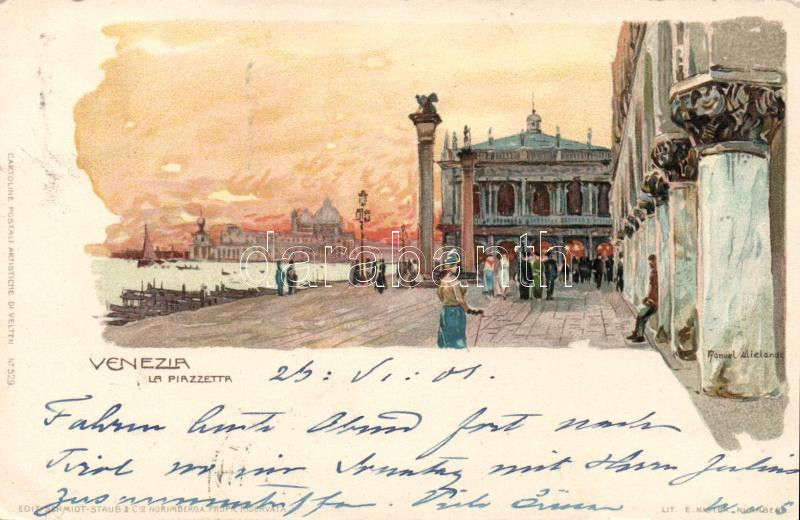 CARTOLINE POSTALI ARTISTICHE DI VELTEN No 529.
darabanth
Manuel Wielandt
VENEZIA
LA PIAZZETTA
VI. 01.
Fahren heute Abend fort nach
Tirol wo wir Sonntag mit Herrn Julius
zusammentreffen. Viele Grüsse
EDIT. SCHMIDT-STAUB & Co NORIMBERGA. PROPR. RISERVATA
LIT. E. NISTER, NÜRNBERG